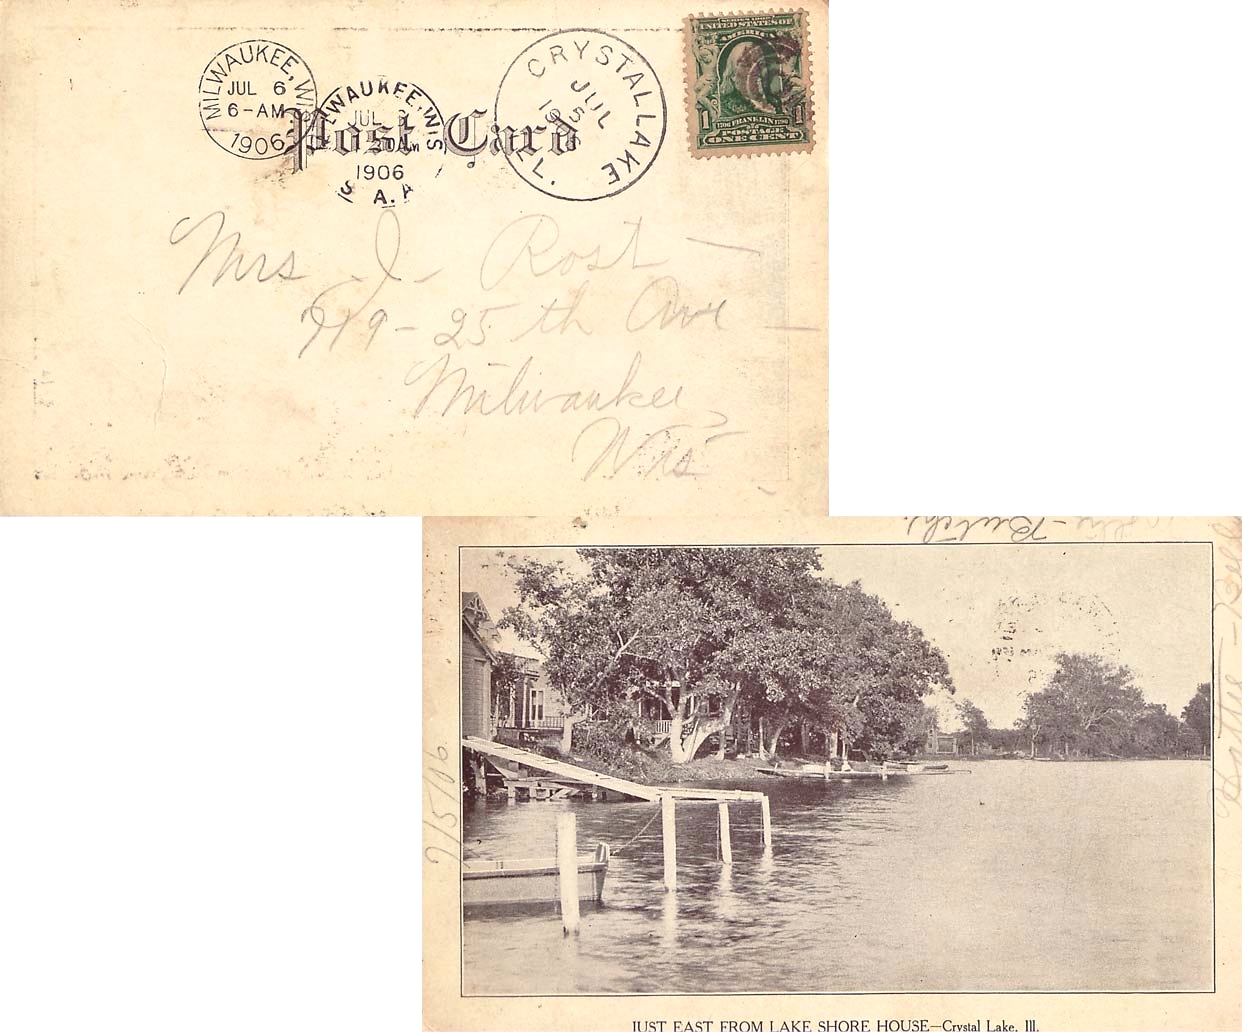 MILWAUKEE, WIS
JUL 6
6-AM
1906
WAUKEE, WIS
JUL
1906
S. A.
Post Card
CRYSTAL LAKE
JUL
5
SERIES 1902
UNITED STATES OF
AMERICA
1 1
FRANKLIN
POSTAGE
ONE CENT
Mrs J. Rost -
919 - 25 th Ave -
Milwaukee,
Wis
7/5/06
JUST EAST FROM LAKE SHORE HOUSE—Crystal Lake, Ill.